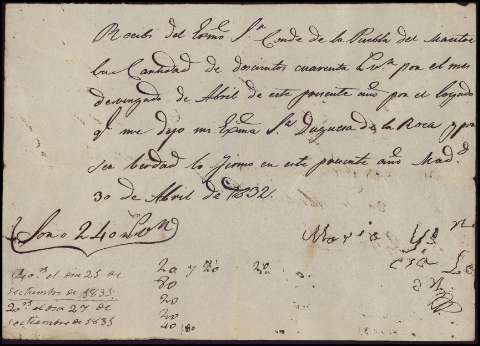 Recibi del Exmo Sr Conde de la Puebla del Maestre
la Cantidad de doscientos cuarenta Rs vn por el mes
devengado de Abril de este presente año por el legado
q me dejo mi Exma Sra Duquesa de la Roca y pa
ser verdad lo firmo en este presente año Madd
30 de Abril de 1832.
Son 240 Rs vn
Maria
20 y 20 20
40 rs el dia 25 de
80
setiembre de 1835
20
20 rs el dia 27 de
20
setiembre de 1835
40